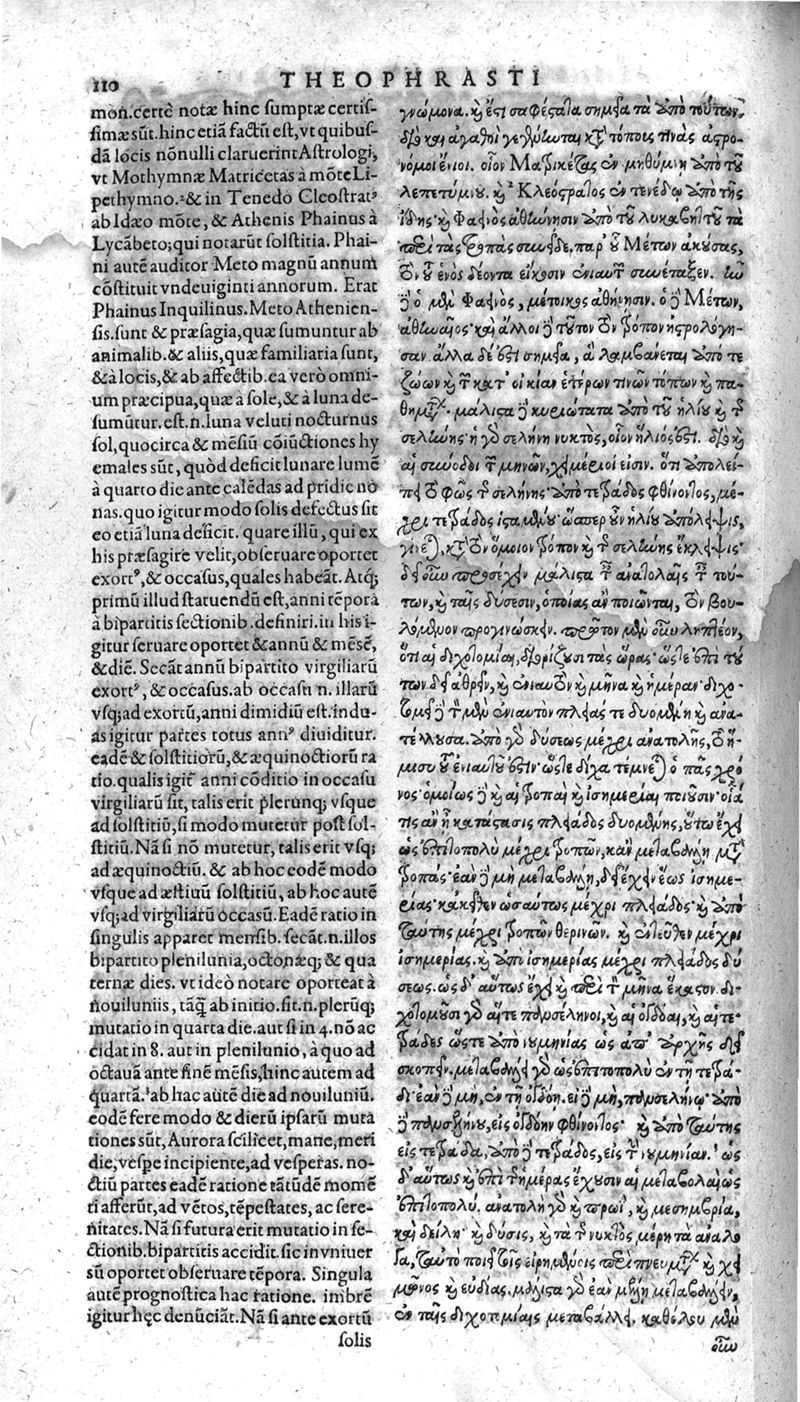 110 THEOPHRASTI
mon.certè notæ hinc sumptæ certiſ-
ſimæ sūt.hinc etiā factū eſt,vt quibuſ-
dā locis nōnulli claruerint Aſtrologi,
vt Mothymnæ Matricetas à mōte Li-
pethymno.²&in Tenedo Cleoſtratꝰ
ab Idæo mōte, & Athenis Phainus à
Lycabeto;qui notarūt ſolſtitia. Phai-
ni autē auditor Meto magnū annum
cōſtituit vndeuiginti annorum. Erat
Phainus Inquilinus. Meto Athenien-
ſis.ſunt & præſagia,quæ ſumuntur ab
animalib.& aliis,quæ familiaria ſunt,
&à locis,& ab affectib.ea verò omni-
um præcipua,quæ à ſole,& à luna de-
ſumūtur.eſt.n.luna veluti nocturnus
ſol,quocirca & mēſiū cōiūctiones hy
emales sūt, quòd deficit lunare lumē
à quarto die ante calēdas ad pridie no
nas.quo igitur modo ſolis defectus ſit
eo etiā luna deficit. quare illū, qui ex
his præſagire velit,obſeruare oportet
exortꝰ,& occaſus,quales habeāt. Atq;
primū illud ſtatuendū eſt,anni tēpora
à bipartitis ſectionib.definiri.in his i-
gitur ſeruare oportet &annū & mēſē,
&diē. Secāt annū bipartito virgiliarū
exortꝰ, & occaſus.ab occaſu n. illarū
vſq;ad exortū,anni dimidiū eſt.in du-
as igitur partes totus annꝰ diuiditur.
eadē & ſolſtitiorū,& æquinoctiorū ra
tio.qualis igit̄ anni cōditio in occaſu
virgiliarū ſit, talis erit plerunq; vſque
ad ſolſtitiū,ſi modo mutetur poſt ſol-
ſtitiū.Nā ſi nō mutetur, talis erit vſq;
ad æquinoctiū. & ab hoc eodē modo
vſque ad æſtiuū ſolſtitiū, ab hoc autē
vſq;ad virgiliarū occaſū.Eadē ratio in
ſingulis apparet menſib.ſecāt.n.illos
bipartito plenilunia,octonæq; & qua
ternæ dies. vt ideò notare oporteat à
nouiluniis, tāq̄ ab initio.ſit.n.plerūq;
mutatio in quarta die.aut ſi in 4.nō ac
cidat in 8. aut in plenilunio, à quo ad
octauā ante finē mēſis,hinc autem ad
quartā.ab hac autē die ad nouiluniū.
eodē fere modo & dierū ipſarū muta
tiones sūt,Aurora ſcilicet,mane,meri
die,veſpe incipiente,ad veſperas. no-
ctiū partes eadē ratione tātūdē momē
ti afferūt,ad vētos,tēpeſtates, ac ſere-
nitates. Nā ſi futura erit mutatio in ſe-
ctionib.bipartitis accidit.ſic in vniuer
sū oportet obſeruare tēpora. Singula
autē prognoſtica hac ratione. imbrē
igitur hęc denūciāt.Nā ſi ante exortū
ſolis
γνώμονα. καὶ ἔστι σαφέστατα σημεῖα τὰ ἀπὸ τούτων.
διὸ καὶ ἀγαθοὶ γεγένηνται κατὰ τόπους τινὰς ἀστρο-
νόμοι ἔνιοι. οἷον Ματρικέτας ἐν μηθύμνῃ ἀπὸ τοῦ
λεπετύμνου. καὶ ² Κλεόστρατος ἐν τενέδῳ ἀπὸ τῆς
ἴδης καὶ Φαεινὸς ἀθήνησιν ἀπὸ τοῦ λυκαβητοῦ τὰ
περὶ τὰς τροπὰς συνεῖδε. παρ' οὗ Μέτων ἀκούσας,
τὸν τοῦ ἑνὸς δέοντα εἴκοσιν ἐνιαυτὸν συνέταξεν. ἦν
δὲ ὁ μὲν Φαεινὸς, μέτοικος ἀθήνησιν. ὁ δὲ Μέτων,
ἀθηναῖος· καὶ ἄλλοι δὲ τοῦτον τὸν τρόπον ἠστρολόγη-
σαν. ἄλλα δέ ἐστι σημεῖα, ἃ λαμβάνεται ἀπό τε
ζώων καὶ τῶν κατ' οἰκίαν ἑτέρων τινῶν τόπων καὶ πα-
θημάτων· μάλιστα δὲ κυριώτατα ἀπὸ τοῦ ἡλίου καὶ τῆς
σελήνης· ἡ γὰρ σελήνη νυκτὸς, οἷον ἥλιός ἐστι. διὸ καὶ
αἱ σύνοδοι τῶν μηνῶν, χειμέριοί εἰσιν. ὅτι ἀπολεί-
πει τὸ φῶς τῆς σελήνης· ἀπὸ τετράδος φθίνοντος, μέ-
χρι τετράδος ἱσταμένου· ὥσπερ οὖν ἡλίου ἀπόλειψις,
γίνεται, κατὰ τὸν ὅμοιον τρόπον καὶ τῆς σελήνης ἔκλειψις·
δεῖ οὖν προσέχειν μάλιστα ταῖς ἀνατολαῖς ταῖς τού-
των, καὶ ταῖς δύσεσιν, ὁποίας ἂν ποιῶνται, τὸν βου-
λόμενον προγινώσκειν. πρῶτον μὲν οὖν ληπτέον,
ὅτι αἱ διχοτομίαι, διορίζουσι τὰς ὥρας· ὥστε ἐπὶ τού
των δεῖ ἀθρεῖν, καὶ ἐνιαυτὸν καὶ μῆνα καὶ ἡμέραν· διχο-
τομεῖ δὲ τὸν μὲν ἐνιαυτὸν πλειάς τε δυομένη καὶ ἀνα-
τέλλουσα. ἀπὸ γὰρ δύσεως μέχρι ἀνατολῆς, τὸ ἥ-
μισυ τοῦ ἐνιαυτοῦ ἐστιν· ὥστε δίχα τέμνεται ὁ πᾶς χρό
νος· ὁμοίως δὲ καὶ αἱ τροπαὶ καὶ ἰσημερίαι ποιοῦσιν· οἵα
τις ἂν ᾖ κατάστασις πλειάδος δυομένης, οὕτω ἔχει
ὡς ἐπιτοπολὺ μέχρι τροπῶν, κἂν μεταβάλῃ μετὰ
τροπάς· ἐὰν δὲ μὴ μεταβάλῃ, διέχειν ἕως ἰσημε-
ρίας· κἀκεῖθεν ὡσαύτως μέχρι πλειάδος· καὶ ἀπὸ
ταύτης μέχρι τροπῶν θερινῶν. καὶ ἐντεῦθεν μέχρι
ἰσημερίας. καὶ ἀπὸ ἰσημερίας μέχρι πλειάδος δύ
σεως. ὡς δ' αὔτως ἔχει καὶ περὶ τὸν μῆνα ἕκαστον. δι-
χοτομοῦσι γὰρ αἵ τε πανσέληνοι, καὶ αἱ ὀγδόαι, καὶ αἱ τε-
τράδες ὥστε ἀπὸ νουμηνίας ὡς ἀπ' ἀρχῆς δεῖ
σκοπεῖν. μεταβάλλει γὰρ ὡς ἐπιτοπολὺ ἐν τῇ τετρά-
δι· ἐὰν δὲ μὴ, ἐν τῇ ὀγδόῃ. εἰ δὲ μὴ, πανσελήνῳ· ἀπὸ
δὲ πανσελήνου, εἰς ὀγδόην φθίνοντος· καὶ ἀπὸ ταύτης
εἰς τετράδα, ἀπὸ δὲ τετράδος, εἰς τὴν νουμηνίαν. ὡς
δ' αὔτως καὶ ἐπὶ τῆς ἡμέρας ἔχουσιν αἱ μεταβολαὶ ὡς
ἐπιτοπολύ. ἀνατολὴ γὰρ καὶ πρωῒ, καὶ μεσημβρία,
καὶ δείλη· καὶ δύσις, καὶ τὰ τῆς νυκτὸς μέρη τὰ ἀνάλο
γα, ταὐτὸ ποιεῖ τοῖς εἰρημένοις περὶ πνευμάτων καὶ χει
μῶνος καὶ εὐδίας. μάλιστα γὰρ ἐὰν μέλλῃ μεταβάλλειν,
ἐν ταῖς διχοτομίαις μεταβάλλει. καθόλου μὲν
οὖν